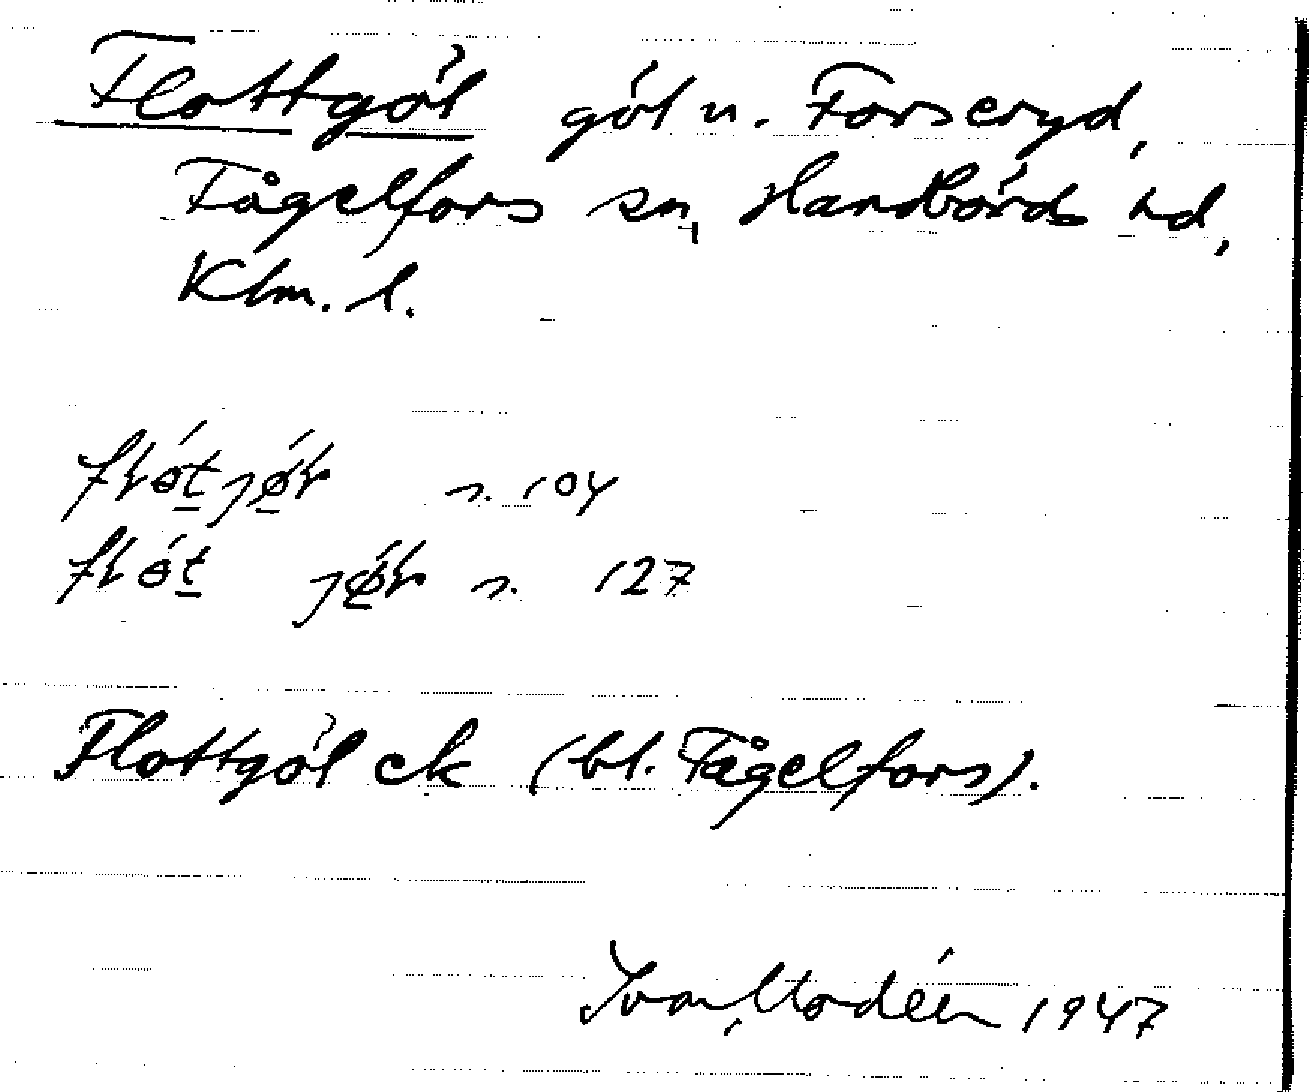 Flottgöl göl n. Forseryd,
Fågelfors sn, Handbörds hd,
Klm. l.
n. 104
n. 127
Flottgöl ek (bl. Fågelfors).
Ivar Modéer 1947